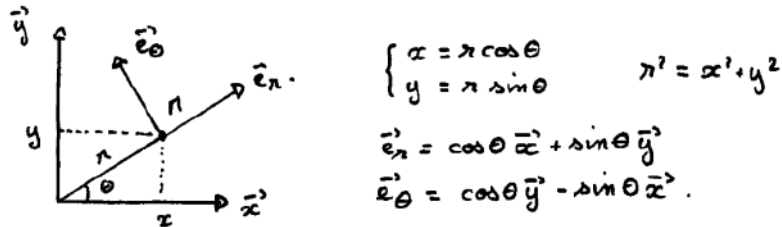 y⃗
e⃗_θ
e⃗_r.
M
y
r
θ
x
x⃗
{ x = r cosθ
y = r sinθ
r² = x² + y²
e⃗_r = cosθ x⃗ + sinθ y⃗
e⃗_θ = cosθ y⃗ - sinθ x⃗.